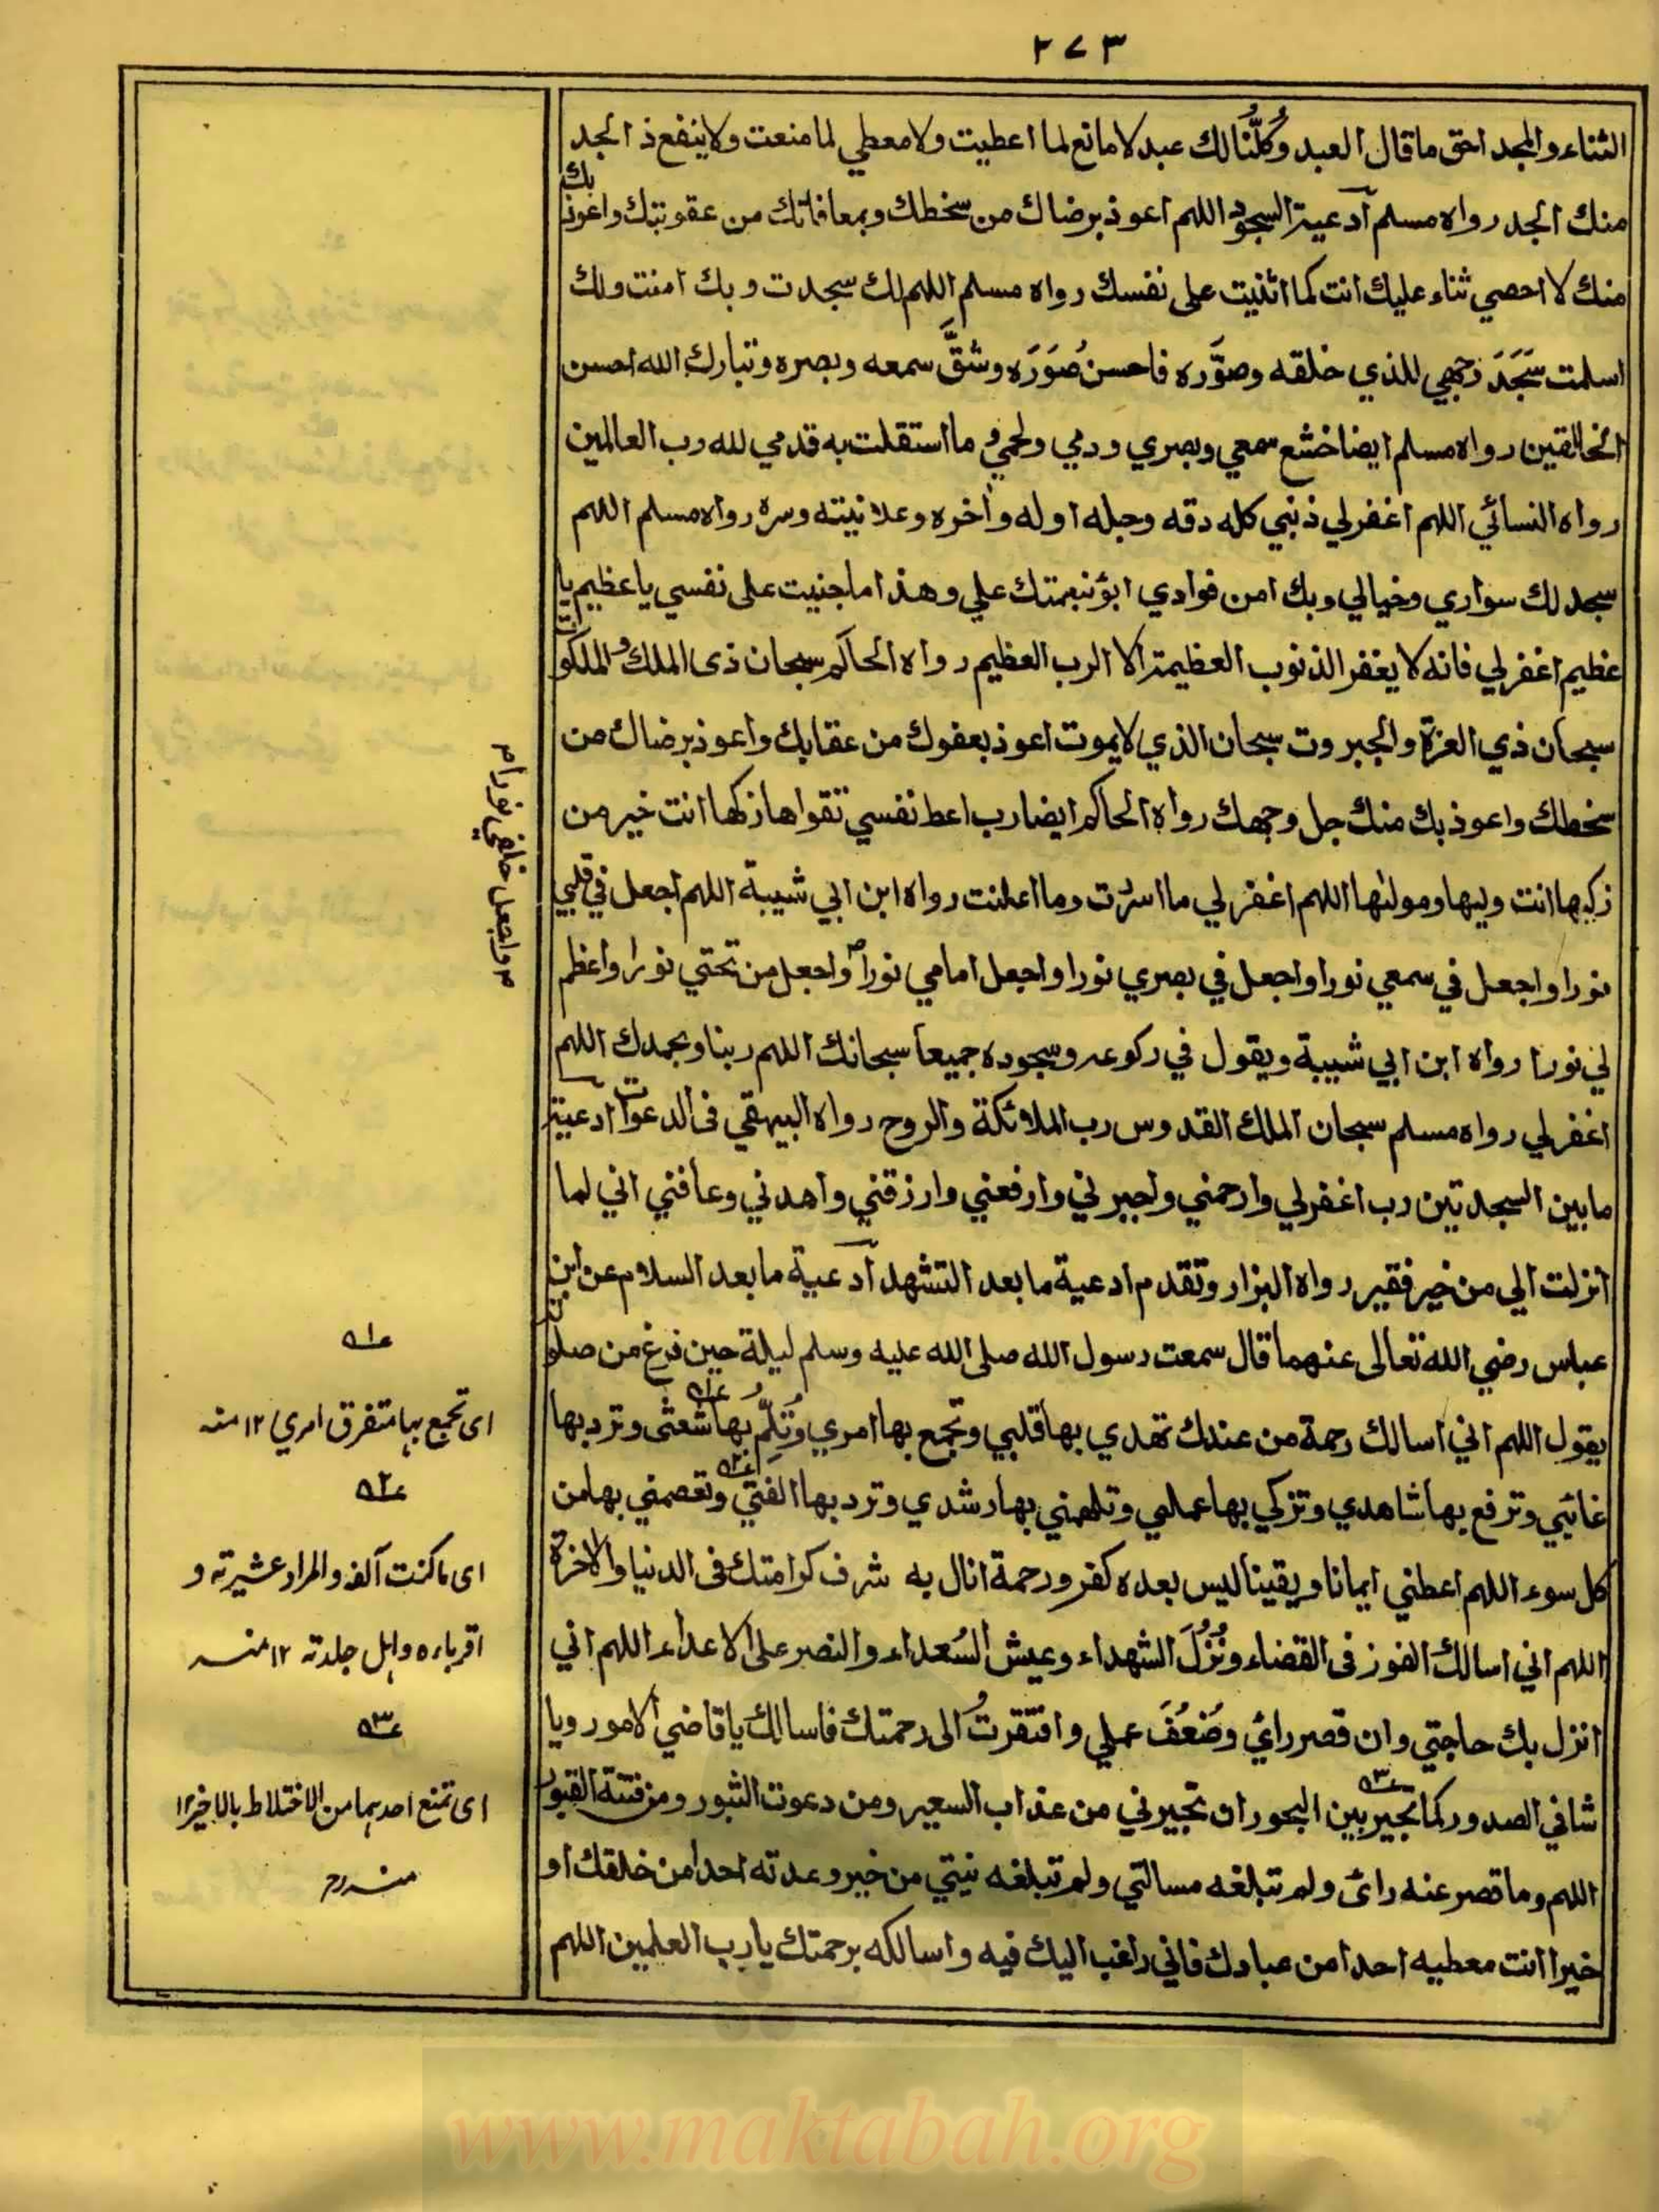 ٢٧٣
الثناء والمجد احق ما قال العبد وكُلُّنا لك عبد لا مانع لما اعطيت ولا معطي لما منعت ولا ينفع ذ الجد
منك الجد رواه مسلم ادعية السجود اللهم اعوذ برضاك من سخطك وبمعافاتك من عقوبتك واعوذ بك
منك لا احصي ثناء عليك انت كما اثنيت على نفسك رواه مسلم اللهم لك سجدت وبك امنت ولك
اسلمت سَجَدَ وجهي للذي خلقه وصوَّره فاحسن صُوَرَه وشقَّ سمعه وبصره وتبارك الله احسن
الخالقين رواه مسلم ايضا خشع سمعي وبصري ودمي ولحمي وما استقلت به قدمي لله رب العالمين
رواه النسائي اللهم اغفر لي ذنبي كله دقه وجله اوله وآخره وعلانيته وسره رواه مسلم اللهم
سجد لك سوادي وخيالي وبك امن فوادي ابؤ بنعمتك علي وهذا ما جنيت على نفسي يا عظيم يا
عظيم اغفر لي فانه لا يغفر الذنوب العظيمة الا الرب العظيم رواه الحاكم سبحان ذى الملك والملكوت
سبحان ذي العزة والجبروت سبحان الذي لا يموت اعوذ بعفوك من عقابك واعوذ برضاك من
سخطك واعوذ بك منك جل وجهك رواه الحاكم ايضا رب اعط نفسي تقواها زكها انت خير من
زكيها انت وليها ومولٰها اللهم اغفر لي ما اسررت وما اعلنت رواه ابن ابي شيبة اللهم اجعل في قلبي
نورا واجعل في سمعي نورا واجعل في بصري نورا واجعل امامي نورا واجعل من تحتي نورا واعظم
لي نورا رواه ابن ابي شيبة ويقول في ركوعه وسجوده جميعا سبحانك اللهم ربنا وبحمدك اللهم
اغفر لي رواه مسلم سبحان الملك القدوس رب الملائكة والروح رواه البيهقي فى الدعوات ادعية
ما بين السجدتين رب اغفر لي وارحمني واجبرني وارفعني وارزقني واهدني وعافني اني لما
انزلت الي من خير فقير رواه البزار وتقدم ادعية ما بعد التشهد ادعية ما بعد السلام عن ابن
عباس رضي الله تعالى عنهما قال سمعت رسول الله صلى الله عليه وسلم ليلة حين فرغ من صلوته
يقول اللهم اني اسالك رحمة من عندك تهدي بها قلبي وتجمع بها امري وتَلُمُّ بها شعثى وترد بها
غائبي وترفع بها شاهدي وتزكي بها عملي وتلهمني بها رشدي وترد بها الفتي وتعصمني بها من
كل سوء اللهم اعطني ايمانا ويقينا ليس بعده كفر ورحمة انال به شرف كرامتك فى الدنيا والاخرة
اللهم اني اسالك الفوز فى القضاء ونُزُلَ الشهداء وعيش السُعداء والنصر على الاعداء اللهم اني
انزل بك حاجتي وان قصر رائي وضَعُفَ عملي وافتقرتُ الى رحمتك فاسالك يا قاضي الامور ويا
شافي الصدور كما تجير بين البحور ان تجيرني من عذاب السعير ومن دعوت الثبور ومن فتنة القبور
اللهم وما قصر عنه رائ ولم تبلغه مسالتي ولم تبلغه نيتي من خير وعدته احدا من خلقك او
خيرا انت معطيه احدا من عبادك فاني راغب اليك فيه واسالكه برحمتك يا رب العلمين اللهم
واجعل خلفي نورا م
عـ١ـه
اى تجمع بها متفرق امري ١٢ منه
عـ٢ـه
اى ما كنت آلفه والمراد عشيرته و
اقرباءه واهل جلدته ١٢ منه
عـ٣ـه
اى تمنع احدهما من الاختلاط بالاخر ١٢
منه رح
www.maktabah.org